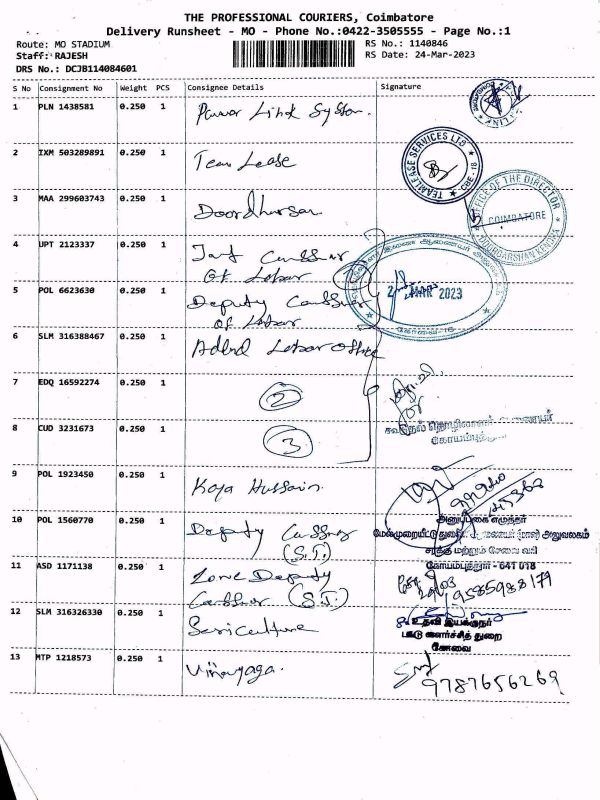 THE PROFESSIONAL COURIERS, Coimbatore
Delivery Runsheet - MO - Phone No.:0422-3505555 - Page No.:1
Route: MO STADIUM
RS No.: 1140846
Staff: RAJESH
RS Date: 24-Mar-2023
DRS No.: DCJB114084601
S No Consignment No Weight PCS Consignee Details Signature
1 PLN 1438581 0.250 1 Power Link System
2 IXM 503289891 0.250 1 Team Lease
TEAMLEASE SERVICES LTD CBE - 18
3 MAA 299603743 0.250 1 Doordharsan
OFFICE OF THE DIRECTOR
COIMBATORE
DOORDARSHAN KENDRA
4 UPT 2123337 0.250 1 Joint Comssnor
Of Labor
5 POL 6623630 0.250 1 Deputy Comssnor
of Labor
2 MAR 2023
கோவை-18
6 SLM 316388467 0.250 1 Adlnd Labor office
7 EDQ 16592274 0.250 1 2
8 CUD 3231673 0.250 1 3
9 POL 1923450 0.250 1 Kaja Hussain
10 POL 1560770 0.250 1 Deputy Comssnor
(S.T.)
அனுப்புகை எழுத்தர்
அலுவலகம்
சரக்கு மற்றும் சேவை வரி
கோயம்புத்தூர் - 641 018
11 ASD 1171138 0.250 1 Zone Deputy
Comssnor (S.T.)
9585988179
12 SLM 316326330 0.250 1 Sericulture
உதவி இயக்குநர்
பட்டு வளர்ச்சித் துறை
கோவை
13 MTP 1218573 0.250 1 Vinayaga.
9787656269